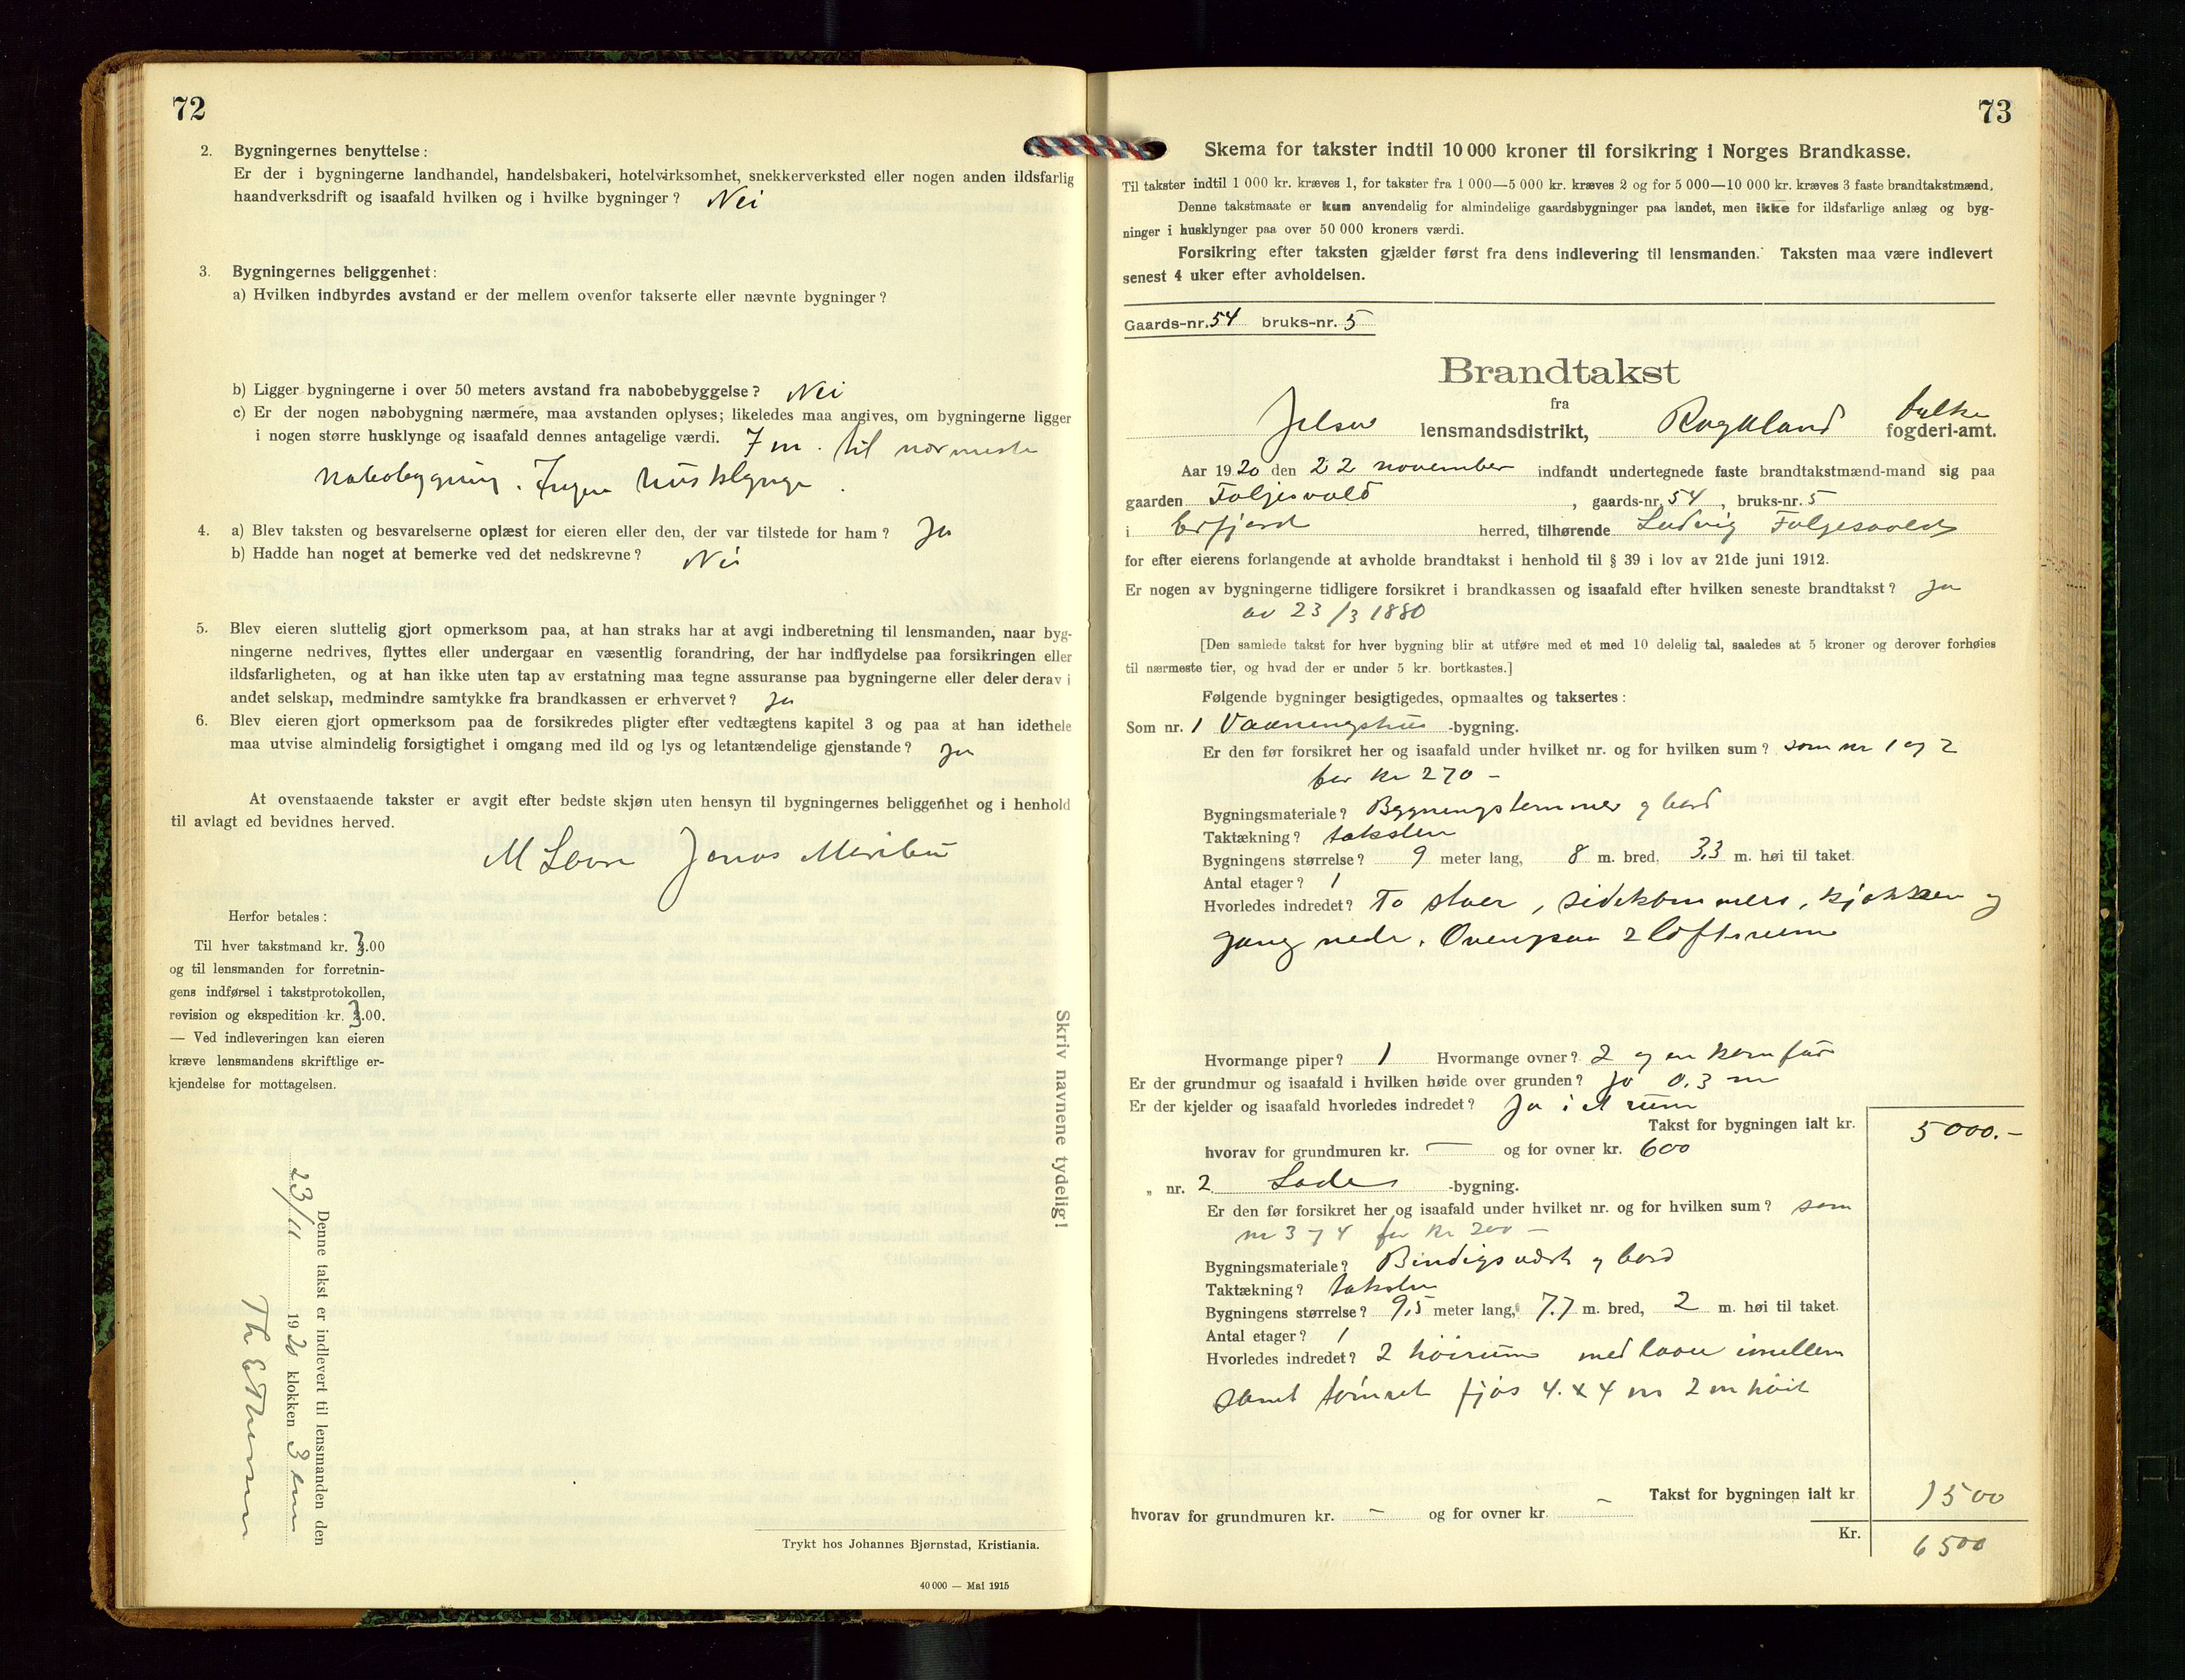 72
2. Bygningernes benyttelse:
Er der i bygningerne landhandel, handelsbakeri, hotelvirksomhet, snekkerverksted eller nogen anden ildsfarlig
haandverksdrift og isaafald hvilken og i hvilke bygninger? Nei
3. Bygningernes beliggenhet:
a) Hvilken indbyrdes avstand er der mellem ovenfor takserte eller nævnte bygninger?
b) Ligger bygningerne i over 50 meters avstand fra nabobebyggelse? Nei
c) Er der nogen nabobygning nærmere, maa avstanden oplyses; likeledes maa angives, om bygningerne ligger
i nogen større husklynge og isaafald dennes antagelige værdi. 7 m. til nærmeste
nabobygning. Ingen husklynge.
4. a) Blev taksten og besvarelserne oplæst for eieren eller den, der var tilstede for ham? Ja
b) Hadde han noget at bemerke ved det nedskrevne? Nei
5. Blev eieren sluttelig gjort opmerksom paa, at han straks har at avgi indberetning til lensmanden, naar byg-
ningerne nedrives, flyttes eller undergaar en væsentlig forandring, der har indflydelse paa forsikringen eller
ildsfarligheten, og at han ikke uten tap av erstatning maa tegne assuranse paa bygningerne eller deler derav i
andet selskap, medmindre samtykke fra brandkassen er erhvervet? Ja
6. Blev eieren gjort opmerksom paa de forsikredes pligter efter vedtægtens kapitel 3 og paa at han idethele
maa utvise almindelig forsigtighet i omgang med ild og lys og letantændelige gjenstande? Ja
At ovenstaaende takster er avgit efter bedste skjøn uten hensyn til bygningernes beliggenhet og i henhold
til avlagt ed bevidnes herved.
M Jonas
Herfor betales:
Til hver takstmand kr. 3.00
og til lensmanden for forretnin-
gens indførsel i takstprotokollen,
revision og ekspedition kr. 3.00.
— Ved indleveringen kan eieren
kræve lensmandens skriftlige er-
kjendelse for mottagelsen.
Skriv navnene tydelig!
Denne takst er indlevert til lensmanden den
23/11 1920 klokken 3 em
Trykt hos Johannes Bjørnstad, Kristiania.
40 000 — Mai 1915
73
Skema for takster indtil 10 000 kroner til forsikring i Norges Brandkasse.
Til takster indtil 1 000 kr. kræves 1, for takster fra 1 000—5 000 kr. kræves 2 og for 5 000—10 000 kr. kræves 3 faste brandtakstmænd.
Denne takstmaate er kun anvendelig for almindelige gaardsbygninger paa landet, men ikke for ildsfarlige anlæg og byg-
ninger i husklynger paa over 50 000 kroners værdi.
Forsikring efter taksten gjælder først fra dens indlevering til lensmanden. Taksten maa være indlevert
senest 4 uker efter avholdelsen.
Gaards-nr. 54 bruks-nr. 5
Brandtakst
fra
Jelsa lensmandsdistrikt, Rogaland fylke fogderi-amt.
Aar 1920 den 22 november indfandt undertegnede faste brandtakstmænd-mand sig paa
gaarden Foljesvold, gaards-nr. 54, bruks-nr. 5
i Erfjord herred, tilhørende Ludvig Foljesvold
for efter eierens forlangende at avholde brandtakst i henhold til § 39 i lov av 21de juni 1912.
Er nogen av bygningerne tidligere forsikret i brandkassen og isaafald efter hvilken seneste brandtakst? Ja
av 23/3 1880
[Den samlede takst for hver bygning blir at utføre med et med 10 delelig tal, saaledes at 5 kroner og derover forhøies
til nærmeste tier, og hvad der er under 5 kr. bortkastes.]
Følgende bygninger besigtigedes, opmaaltes og taksertes:
Som nr. 1 Vaaningshus -bygning.
Er den før forsikret her og isaafald under hvilket nr. og for hvilken sum? som nr 1 og 2
for kr 270 -
Bygningsmateriale? Bygningstømmer og bord
Taktækning? taksten
Bygningens størrelse? 9 meter lang, 8 m. bred, 3.3 m. høi til taket.
Antal etager? 1
Hvorledes indredet? To stuer, sidekammers, kjøkken og
gang nede. Ovenpaa 2 loftsrum
Hvormange piper? 1 Hvormange ovner? 2 og en komfur
Er der grundmur og isaafald i hvilken høide over grunden? Ja 0.3 m
Er der kjelder og isaafald hvorledes indredet? Ja i et rum
Takst for bygningen ialt kr. 5000.-
hvorav for grundmuren kr. — og for ovner kr. 600
„ nr. 2 Lade -bygning.
Er den før forsikret her og isaafald under hvilket nr. og for hvilken sum? som
nr 3 og 4 for kr 200 —
Bygningsmateriale? Bindigsverk og bord
Taktækning? taksten
Bygningens størrelse? 9,5 meter lang, 7.7 m. bred, 2 m. høi til taket.
Antal etager? 1
Hvorledes indredet? 2 høirum med laave imellem
samt tømret fjøs 4 x 4 m 2 m høit
Takst for bygningen ialt kr 1500
hvorav for grundmuren kr. - og for ovner kr. -
Kr. 6500